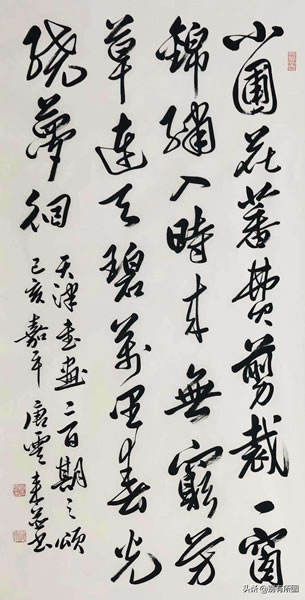 小圃花蕃費剪裁一窗
錦繡入時來無窮芳
草連天碧萬里春光
繞夢徊
天津書畫二百期之頌
己亥嘉平 唐雲來並書
头条 @别有所图